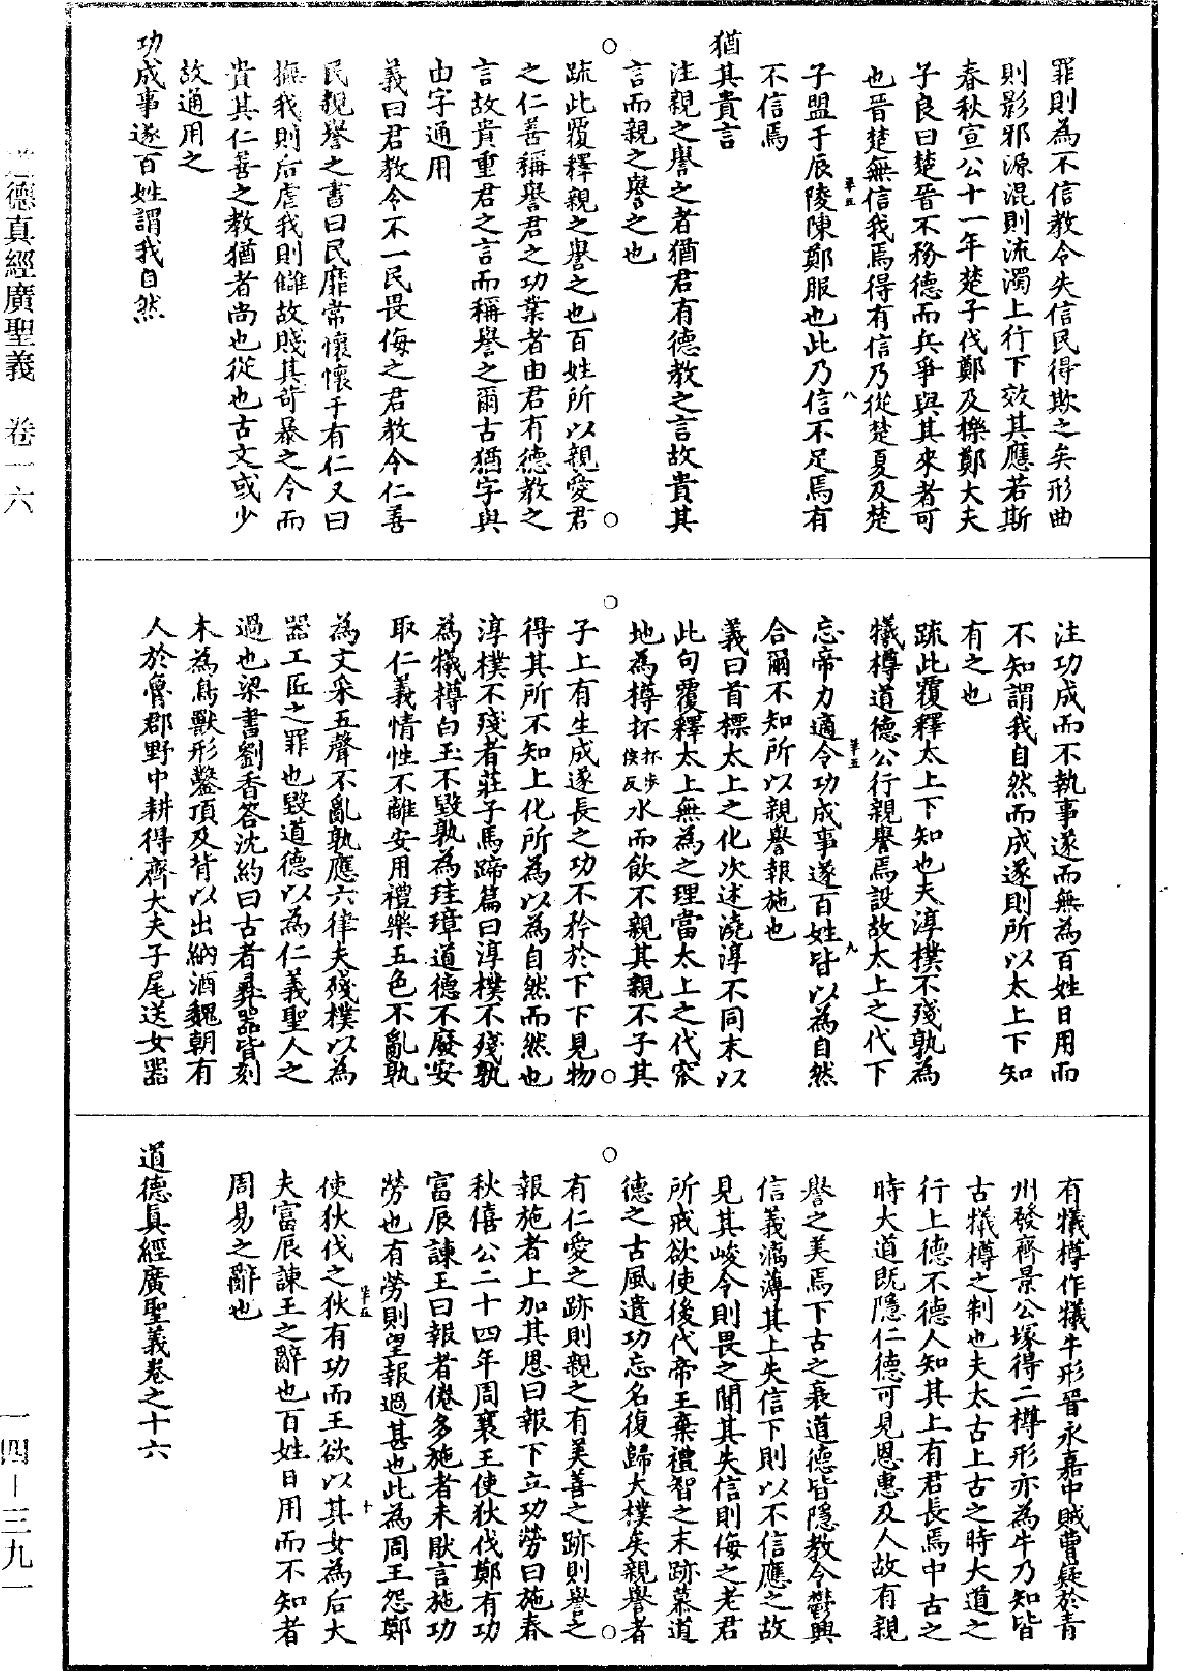 罪則為不信教令失信民得欺之矣形曲
則影邪源混則流濁上行下效其應若斯
春秋宣公十一年楚子伐鄭及櫟鄭大夫
子良曰楚晉不務德而兵爭與其來者可
也晉楚無信我焉得有信乃從楚夏及楚
子盟于辰陵陳鄭服也此乃信不足焉有
不信焉
猶其貴言
注親之譽之者猶君有德教之言故貴其
言而親之譽之也
疏此覆釋親之譽之也百姓所以親愛君
之仁善稱譽君之功業者由君有德教之
言故貴重君之言而稱譽之爾古猶字與
由字通用
義曰君教令不一民畏侮之君教令仁善
民親譽之書曰民靡常懷懷于有仁又曰
撫我則后虐我則讎故賤其苛暴之令而
貴其仁善之教猶者尚也從也古文或少
故通用之
功成事遂百姓謂我自然
注功成而不執事遂而無為百姓日用而
不知謂我自然而成遂則所以太上下知
有之也
疏此覆釋太上下知也夫淳樸不殘孰為
犧樽道德公行親譽焉設故太上之代下
忘帝力適令功成事遂百姓皆以為自然
合爾不知所以親譽報施也
義曰首標太上之化次述澆淳不同末以
此句覆釋太上無為之理當太上之代窊
地為樽抔抔步侯反水而飲不親其親不子其
子上有生成遂長之功不矜於下下見物
得其所不知上化所為以為自然而然也
淳樸不殘者莊子馬蹄篇曰淳樸不殘孰
為犧樽白玉不毀孰為珪璋道德不廢安
取仁義情性不離安用禮樂五色不亂孰
為文采五聲不亂孰應六律夫殘樸以為
器工匠之罪也毀道德以為仁義聖人之
過也梁書劉香答沈約曰古者彝器皆刻
木為鳥獸形鑿頂及背以出納酒魏朝有
人於魯郡野中耕得齊大夫子尾送女器
有犧樽作犧牛形晉永嘉中賊曹嶷於青
州發齊景公塚得二樽形亦為牛乃知皆
古犧樽之制也夫太古上古之時大道之
行上德不德人知其上有君長焉中古之
時大道既隱仁德可見恩惠及人故有親
譽之美焉下古之衰道德皆隱教令鬱興
信義澆薄其上失信下則以不信應之故
見其峻令則畏之聞其失信則侮之老君
所戒欲使後代帝王棄禮智之末跡慕道
德之古風遺功忘名復歸大樸矣親譽者
有仁愛之跡則親之有美善之跡則譽之
報施者上加其恩曰報下立功勞曰施春
秋僖公二十四年周襄王使狄伐鄭有功
富辰諫王曰報者倦多施者未猒言施功
勞也有勞則望報過甚也此為周王怨鄭
使狄伐之狄有功而王欲以其女為后大
夫富辰諫王之辭也百姓日用而不知者
周易之辭也
道德真經廣聖義卷之十六
德真經廣聖義　卷一六
一四－三九一